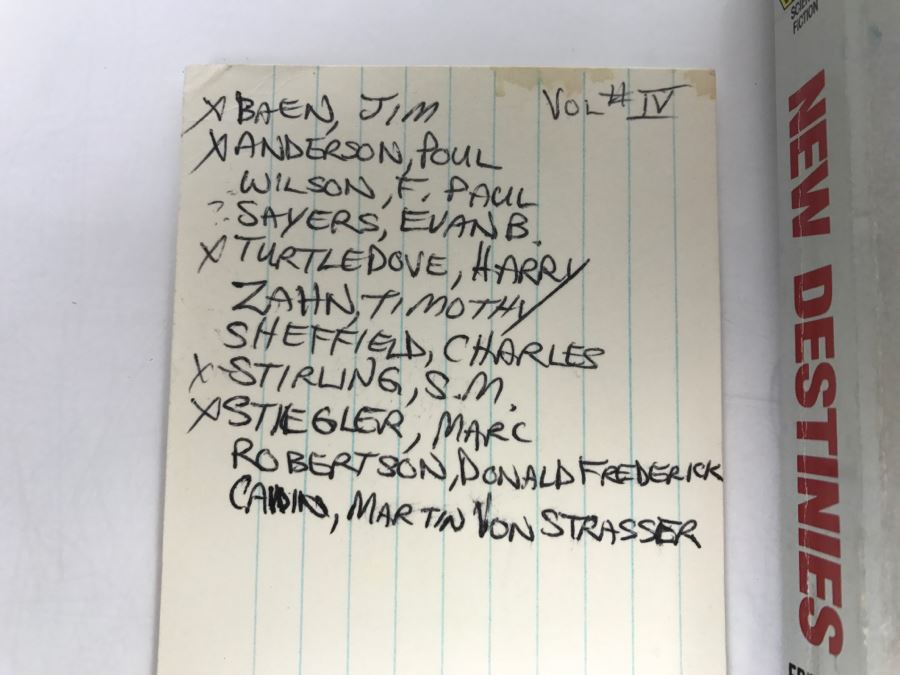 VOL # IV
X BAEN, JIM
X ANDERSON, POUL
WILSON, F. PAUL
? SAYERS, EVAN B.
X TURTLEDOVE, HARRY
ZAHN, TIMOTHY
SHEFFIELD, CHARLES
X STIRLING, S.M.
X STIEGLER, MARC
ROBERTSON, DONALD FREDERICK
MARTIN VON STRASSER
FICTION
NEW DESTINIES